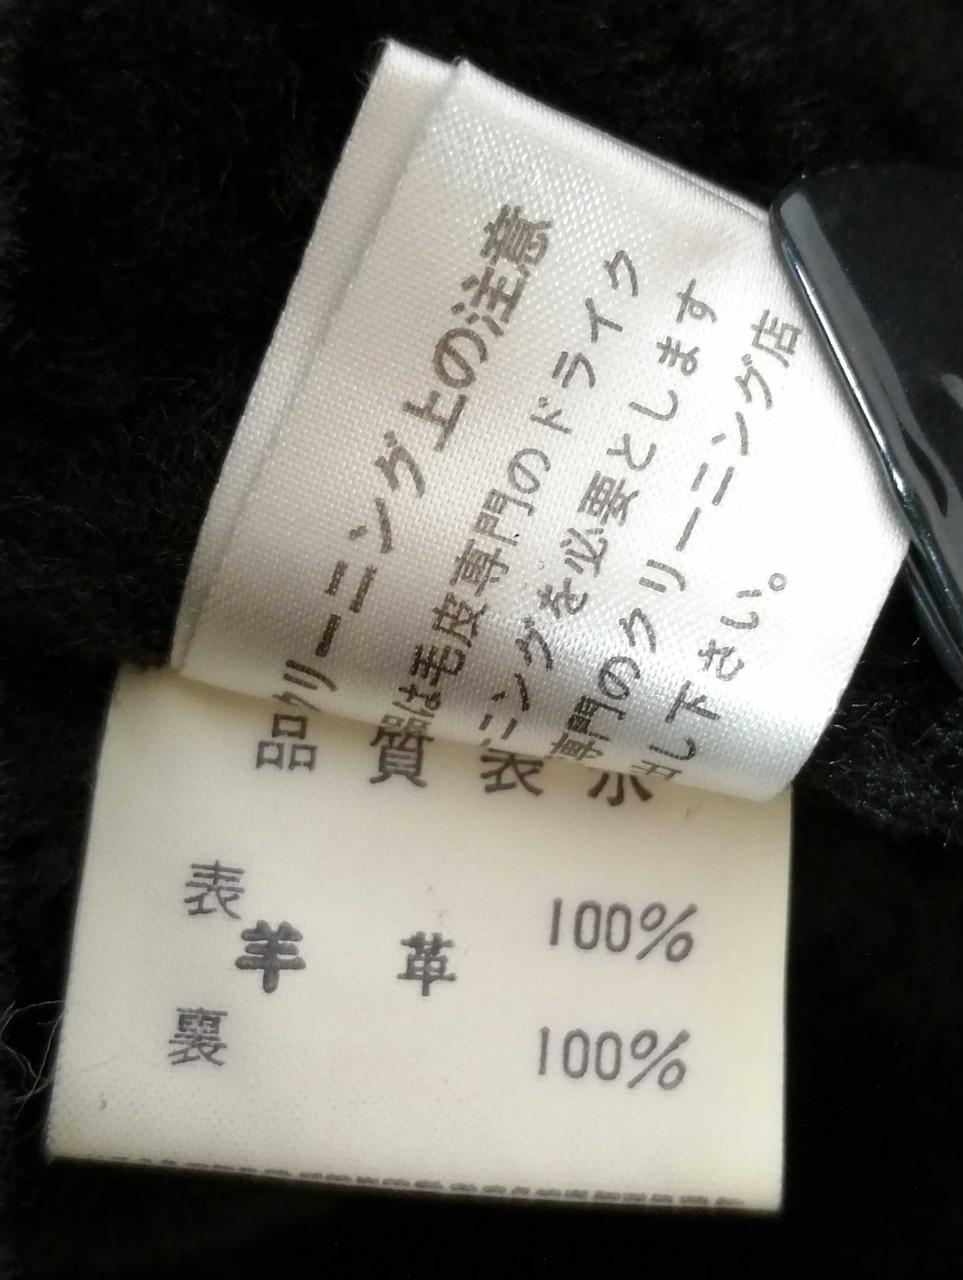 クリーニング上の注意
は毛皮専門のドライク
ニングを必要とします
専門のクリーニング店
出し下さい。
品質表示
表
羊 革 100%
裏 100%